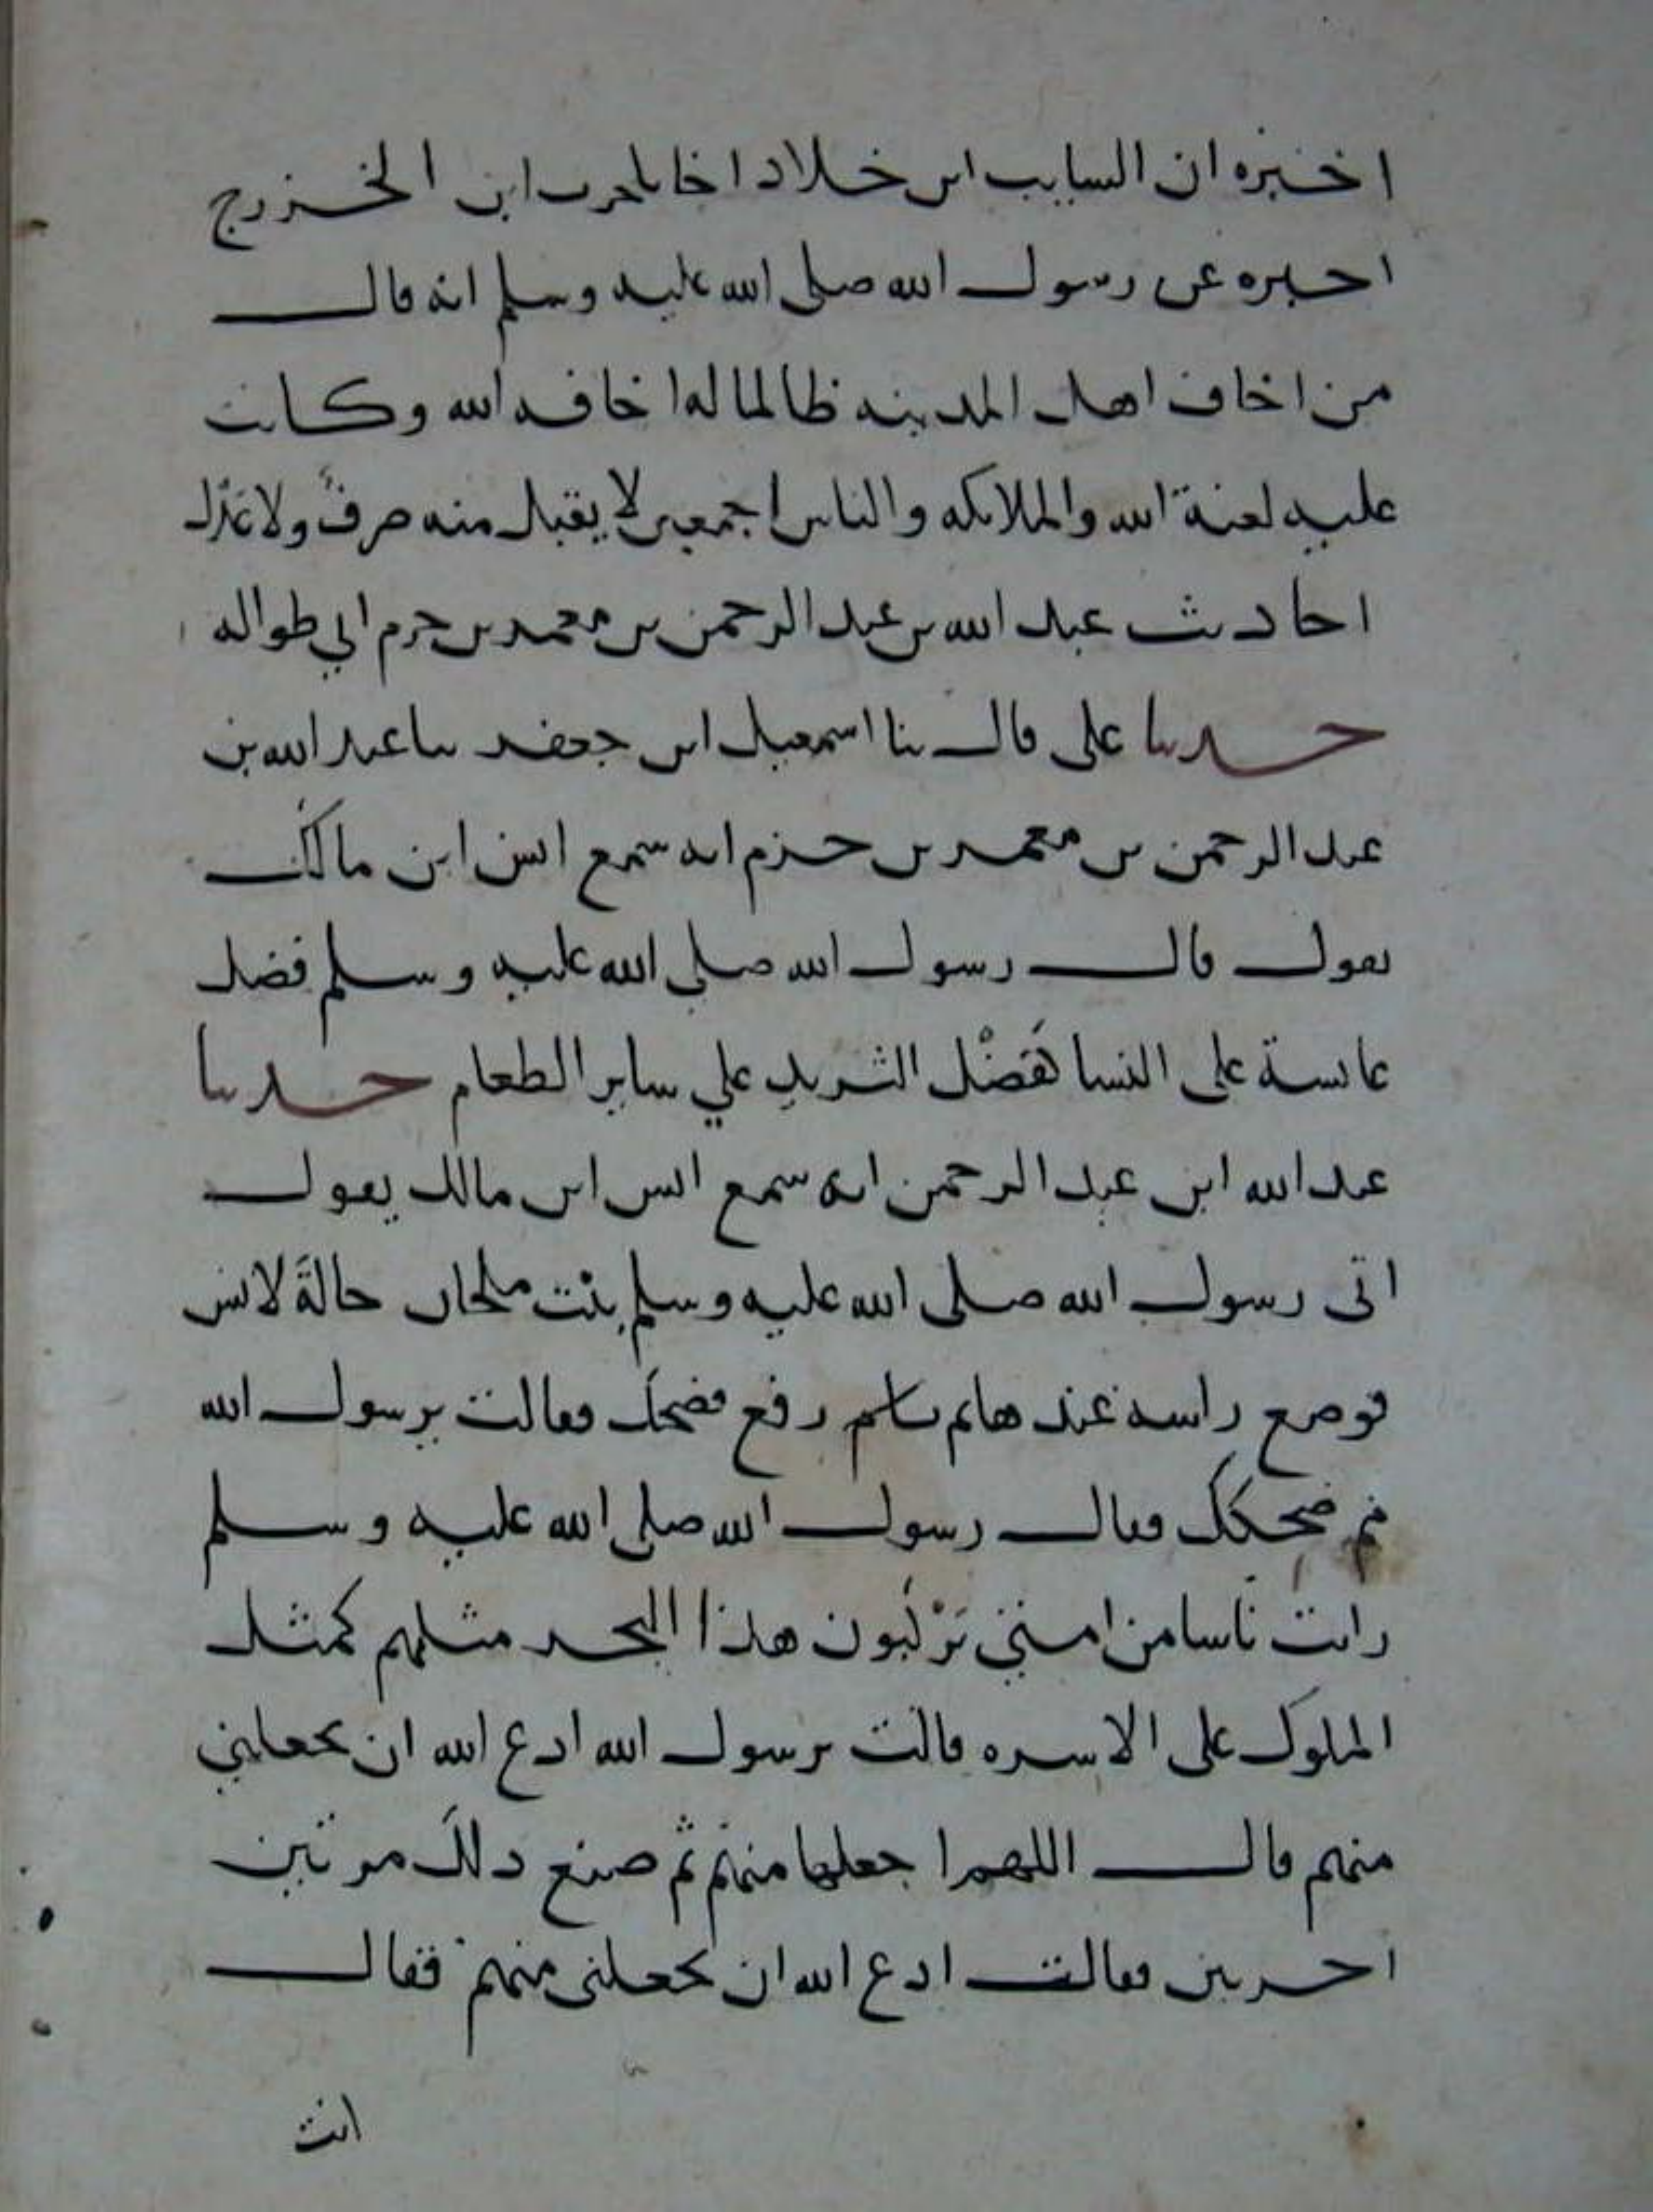 اخبره ان السايب ابن خلاد اخا بلحرث ابن الخزرج
اخبره عن رسول الله صلى الله عليه وسلم انه قال
من اخاف اهل المدينه ظالما لها اخافه الله وكانت
عليه لعنة الله والملائكه والناس اجمعين لا يقبل منه صرفٌ ولا عَدْل
احاديث عبد الله بن عبد الرحمن بن محمد بن حزم ابي طواله
حدثنا على قال ثنا اسمعيل ابن جعفر ثنا عبد الله بن
عبد الرحمن بن محمد بن حزم انه سمع انس ابن مالك
يقول قال رسول الله صلى الله عليه وسلم فضل
عايشة على النسا كفَضْل الثريد علي ساير الطعام حدثنا
عبد الله ابن عبد الرحمن انه سمع انس ابن مالك يقول
اتى رسول الله صلى الله عليه وسلم بِنْت ملحان خالةَ لانس
فوضع راسه عندها ثم رفع فضحك فقالت يرسول الله
مم ضحكك فقال رسول الله صلى الله عليه وسلم
رايت ناسا من امتي يَرْكَبون هذا البحر مثلهم كمثل
الملوك على الاسره قالت يرسول الله ادع الله ان يجعلني
منهم قال اللهم اجعلها منهم ثم صنع ذلك مرتين
اخريين فقالت ادع الله ان يجعلنى منهم فقال
انت